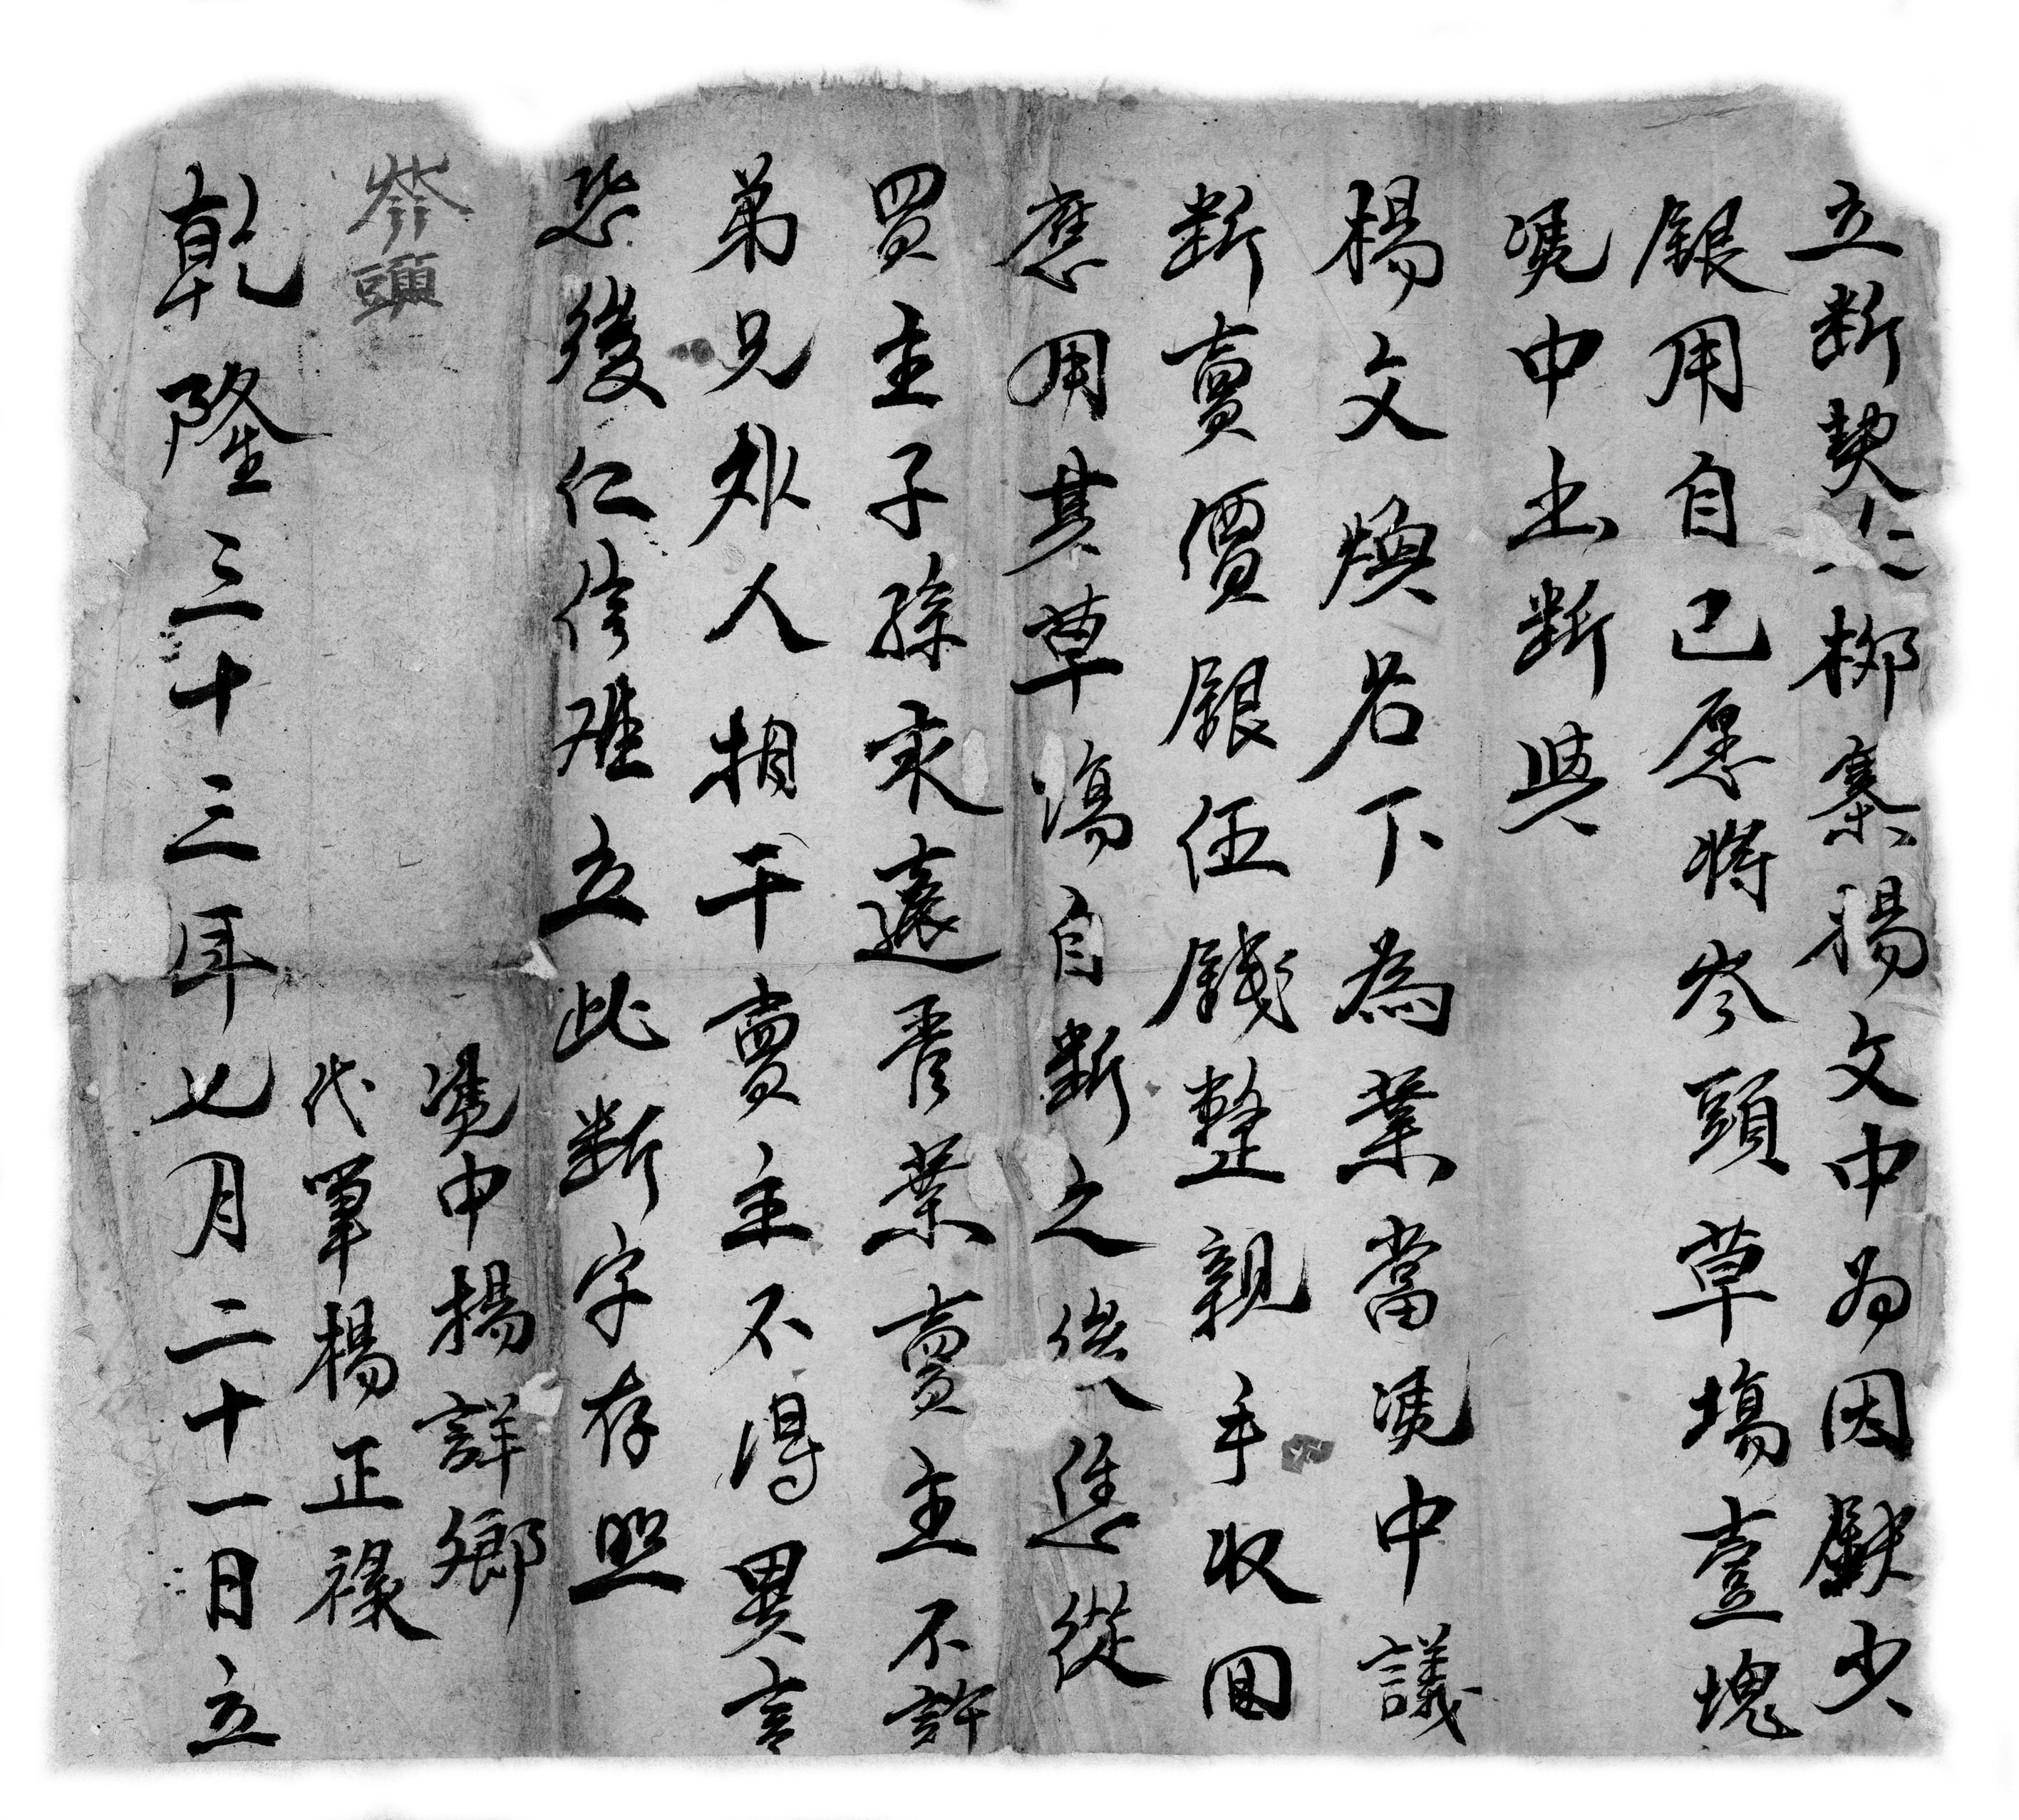 立斷契人柳寨楊文中為因缺少
銀用自己愿將岑頭草塲壹塊
凴中出斷與
楊文煥名下為業當凴中議
斷賣價銀伍錢整親手收回
應用其草塲自斷之後恁從
買主子孫永遠管業賣主不許
弟兄外人相干賣主不得異言
恐後仁信难立此斷字存照
凴中楊詳鄉
代筆楊正祿
岑頭
乾隆三十三年七月二十一日立